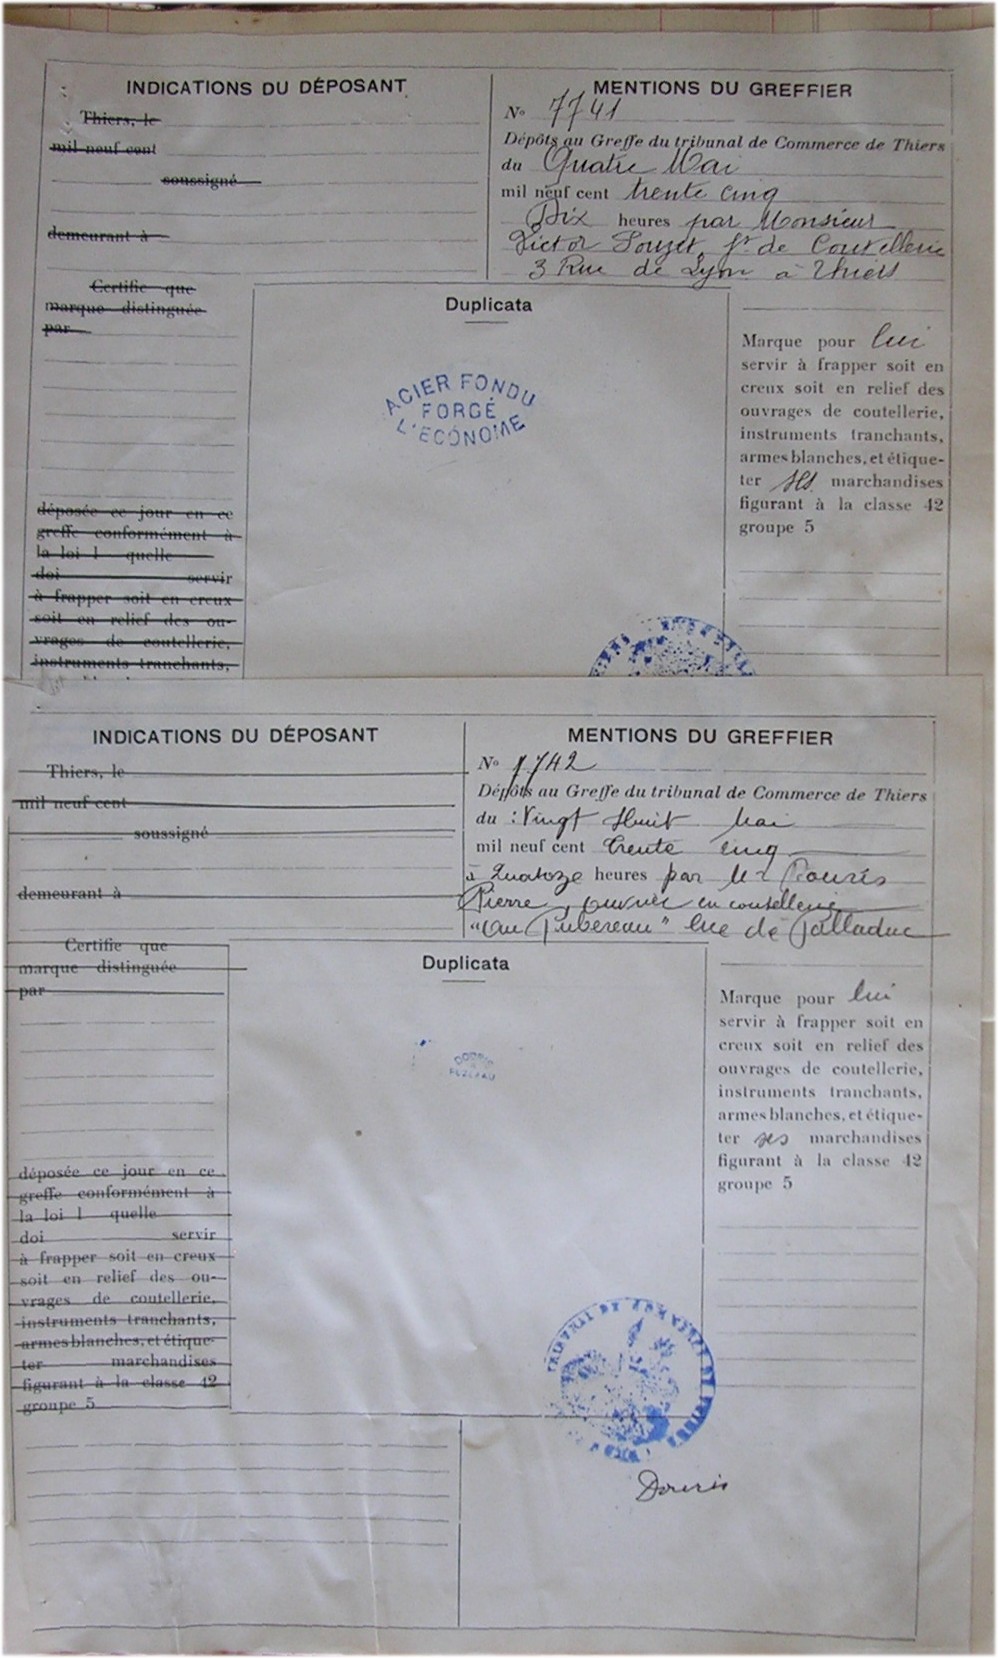 INDICATIONS DU DÉPOSANT
Thiers, le
mil neuf cent
soussigné
demeurant à
MENTIONS DU GREFFIER
N° 7741
Dépôts au Greffe du tribunal de Commerce de Thiers
du Quatre Mai
mil neuf cent trente cinq
Dix heures par Monsieur
Victor Souzet, ft de Coutellerie
3 Rue de Lyon à Thiers
Certifie que
marque distinguée
par
déposée ce jour en ce
greffe conformément à
la loi l quelle
doi servir
à frapper soit en creux
soit en relief des ou-
vrages de coutellerie,
instruments tranchants,
Duplicata
ACIER FONDU
FORGÉ
L'ECONOME
Marque pour lui
servir à frapper soit en
creux soit en relief des
ouvrages de coutellerie,
instruments tranchants,
armes blanches, et étique-
ter ses marchandises
figurant à la classe 42
groupe 5
INDICATIONS DU DÉPOSANT
Thiers, le
mil neuf cent
soussigné
demeurant à
MENTIONS DU GREFFIER
N° 7742
Dépôts au Greffe du tribunal de Commerce de Thiers
du Vingt Huit Mai
mil neuf cent trente cinq
à Quatoze heures par Mr
Pierre, ouvrier en coutellerie
"Au Pubereau" Cne de Palladuc
Certifie que
marque distinguée
par
déposée ce jour en ce
greffe conformément à
la loi l quelle
doi servir
à frapper soit en creux
soit en relief des ou-
vrages de coutellerie,
instruments tranchants,
armes blanches, et étique-
ter marchandises
figurant à la classe 42
groupe 5
Duplicata
Marque pour lui
servir à frapper soit en
creux soit en relief des
ouvrages de coutellerie,
instruments tranchants,
armes blanches, et étique-
ter ses marchandises
figurant à la classe 42
groupe 5
TRIBUNAL DE COMMERCE DE THIERS